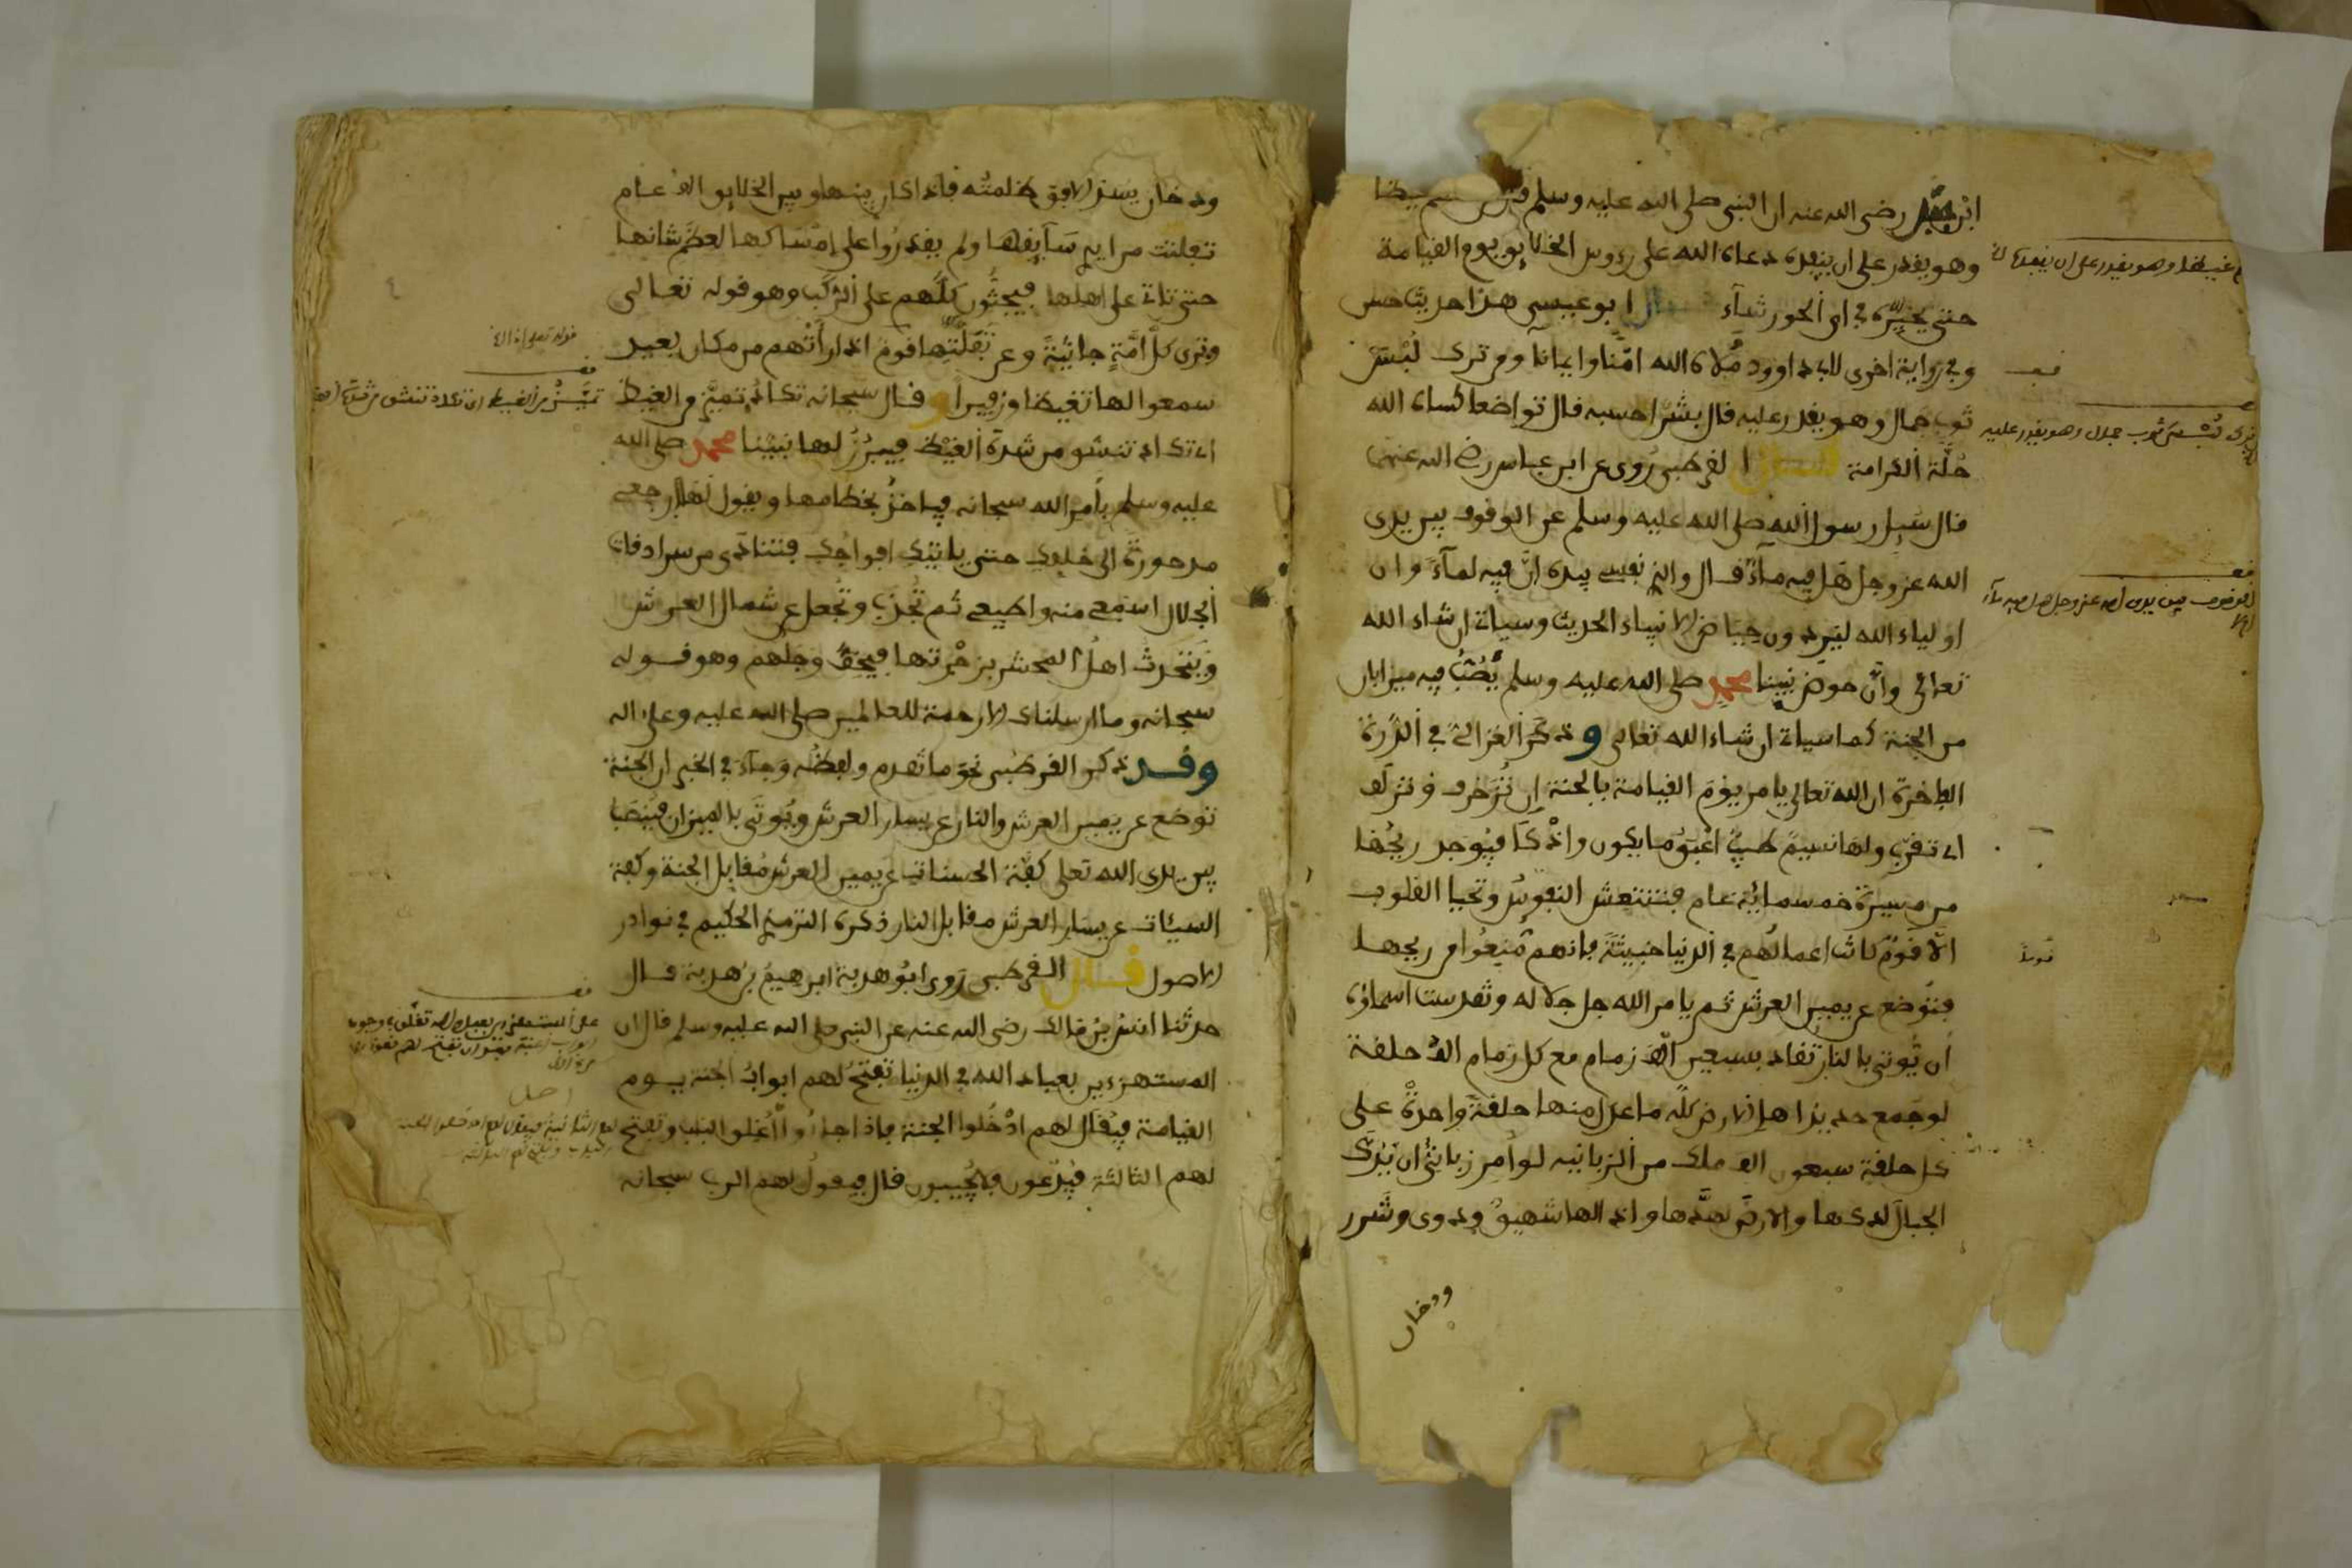 رضي الله عنه ان النبي صلى الله عليه وسلم
وهو يقدر على ان ينفذه دعاه الله على رءوس الخلايق يوم القيامة
حتى يخيره في اي الحور شاء قال ابو عيسى هذا حديث حسن
وفي رواية اخرى لابي داوود ملاه الله امنا وايمانا ومن ترك لبس
ثوب جمال وهو يقدر عليه قال بشر احسبه قال تواضعا كساه الله
حلة الكرامة قال القرطبي روى عن ابن عباس رضي الله عنهما
قال سيل رسول الله صلى الله عليه وسلم عن الوقوف بين يدي
الله عز وجل هل فيه ماء قال والذي نفسي بيده ان فيه لماء وان
اولياء الله ليردون حياض الانبياء الحديث وسياتي ان شاء الله
تعالى وان حوض نبينا محمد صلى الله عليه وسلم يصب فيه ميزابان
من الجنة كما سياتي ان شاء الله تعالى وذكر الغزالي في الدرة
الفاخرة ان الله تعالى يامر يوم القيامة بالجنة ان تزخرف وتزلف
اي تقرب ولها نسيم طيب اعبق ما يكون واذكا فيوجد ريحها
من مسيرة خمسمائة عام فتنتعش النفوس وتحيا القلوب
الا قوم كانت اعمالهم في الدنيا خبيثة فانهم منعوا من ريحها
فتوضع عن يمين العرش ثم يامر الله جل جلاله وتقدست اسماؤه
ان يوتى بالنار تقاد بسبعين الف زمام مع كل زمام الف حلقة
لو جمع حديد اهل الارض كله ما عدل منها حلقة واحدة على
كل حلقة سبعون الف ملك من الزبانية لو امر زباني ان يدك
الجبال لدكها والارض لهدها واذا لها شهيق ودوي وشرر
ودخان
غيظا وهو يقدر على ان ينفذه
لبس ثوب جمال وهو يقدر عليه
الوقوف بين يدي الله عز وجل هل فيه ماء
ودخان يسد الافق ظلمته فاذا كان بينها وبين الخلايق الف عام
تفلتت من ايدي سايقها ولم يقدروا على امساكها لعظم شانها
حتى تاتي على اهلها فيجثون كلهم على الركب وهو قوله تعالى
وترى كل امة جاثية وعن تفلتها قوله اذا راتهم من مكان بعيد
سمعوا لها تغيظا وزفيرا وقال سبحانه تكاد تميز من الغيظ
اي تكاد تنشق من شدة الغيظ فيبرز لها نبينا محمد صلى الله
عليه وسلم بامر الله سبحانه فياخذ بخطامها ويقول لها ارجعي
مدحورة الى خلفك حتى ياتيك افواجك فتنادى من سرادقات
الجلال اسمعي منه واطيعي ثم تجذب وتجعل عن شمال العرش
ويتحدث اهل المحشر بزمرتها فيخف وجلهم وهو قوله
سبحانه وما ارسلناك الا رحمة للعالمين صلى الله عليه وعلى اله
وقد ذكر القرطبي نحو ما تقدم ولفظه وجاء في الخبر ان الجنة
توضع عن يمين العرش والنار عن يسار العرش ويوتى بالميزان فينصب
بين يدي الله تعلى كفة الحسنات عن يمين العرش مقابل الجنة وكفة
السيئات عن يسار العرش مقابل النار ذكره الترمذي الحكيم في نوادر
الاصول قال القرطبي روى ابو هدبة ابرهيم بن هدبة قال
حدثنا انس بن مالك رضي الله عنه عن النبي صلى الله عليه وسلم قال ان
المستهزءين بعباد الله في الدنيا تفتح لهم ابواب الجنة يوم
القيامة فيقال لهم ادخلوا الجنة فاذا جاءوا اغلق الباب وتفتح
لهم الثالثة فيدعون فلا يجيبون قال فيقول لهم الرب سبحانه
تميز من الغيظ اي تكاد تنشق من شدة